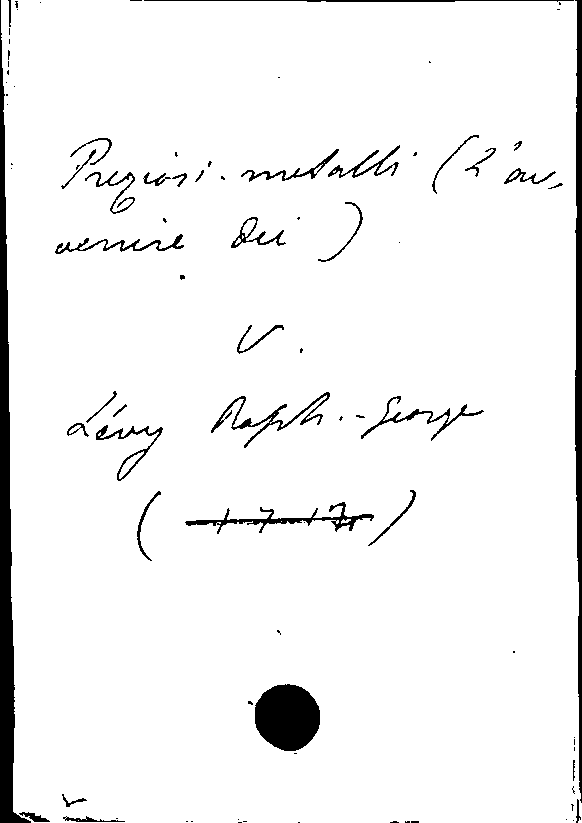 Preziosi metalli (L'av-
venire dei)
V.
Lévy Raph.-George